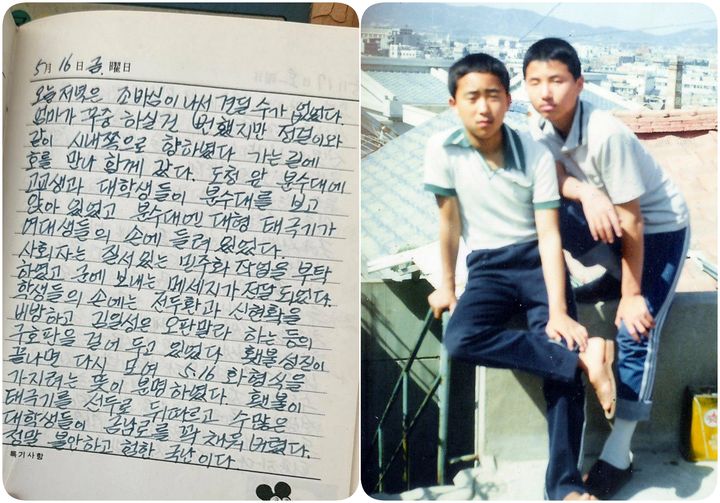 5月 16日 금.曜日
오늘 저녁은 조바심이 나서 견딜 수가 없었다
엄마가 꾸중 하실건 뻔했지만 정길이와
같이 시내쪽으로 향하였다 가는길에
호를 만나 함께 갔다. 도청 앞 분수대에
고교생과 대학생들이 분수대를 보고
앉아 있었고 분수대엔 대형 태극기가
여대생들의 손에 들려 있었다.
사회자는 질서있는 민주화 작업을 부탁
하였고 군에 보내는 메세지가 전달 되었다.
학생들의 손에는 전두환과 신현확을
비방하고 김일성은 오판말라 하는 등의
구호판을 걸어 두고 있었다 횃불성진이
끝나면 다시 모여 5.16 화형식을
가지려는 뜻이 분명하였다 횃불이
태극기를 선두로 뒤따르고 수많은
대학생들이 금남로를 꽉 채워 버렸다.
정말 불안하고 험한 국난이다
특기사항